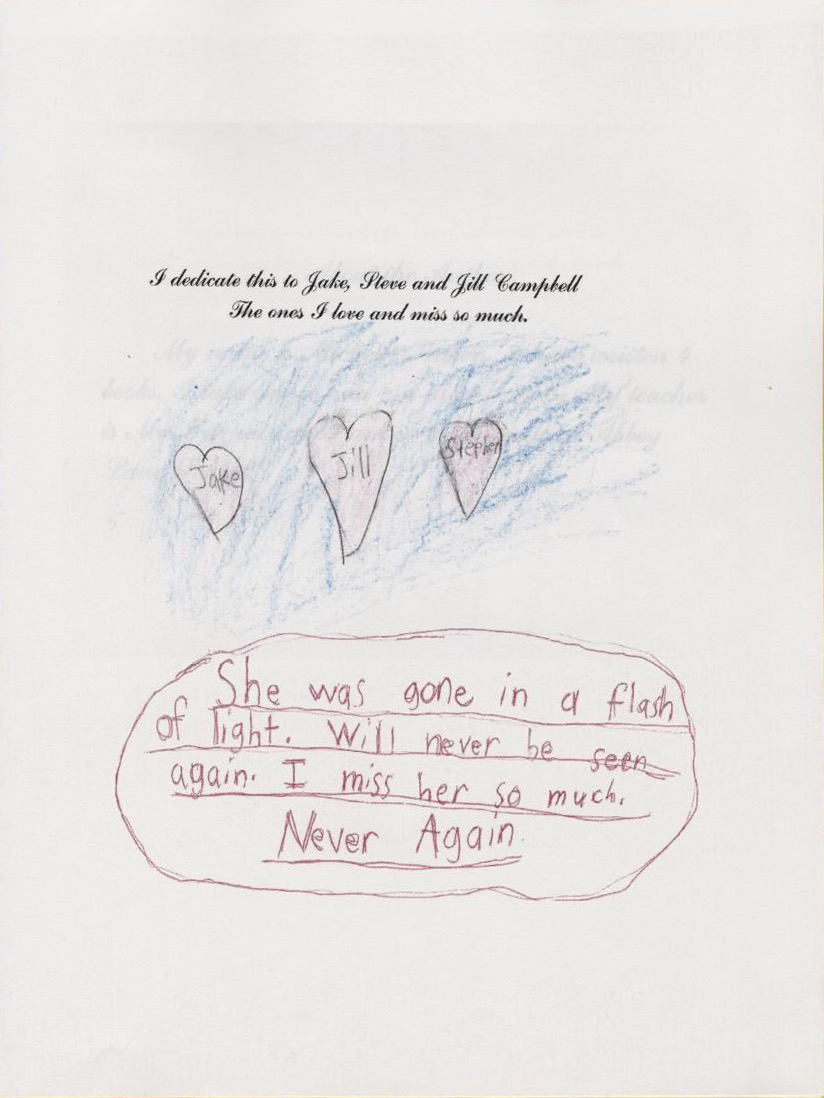 I dedicate this to Jake, Steve and Jill Campbell
The ones I love and miss so much.
Jake
Jill
Stephen
She was gone in a flash
of light. Will never be seen
again. I miss her so much.
Never Again.